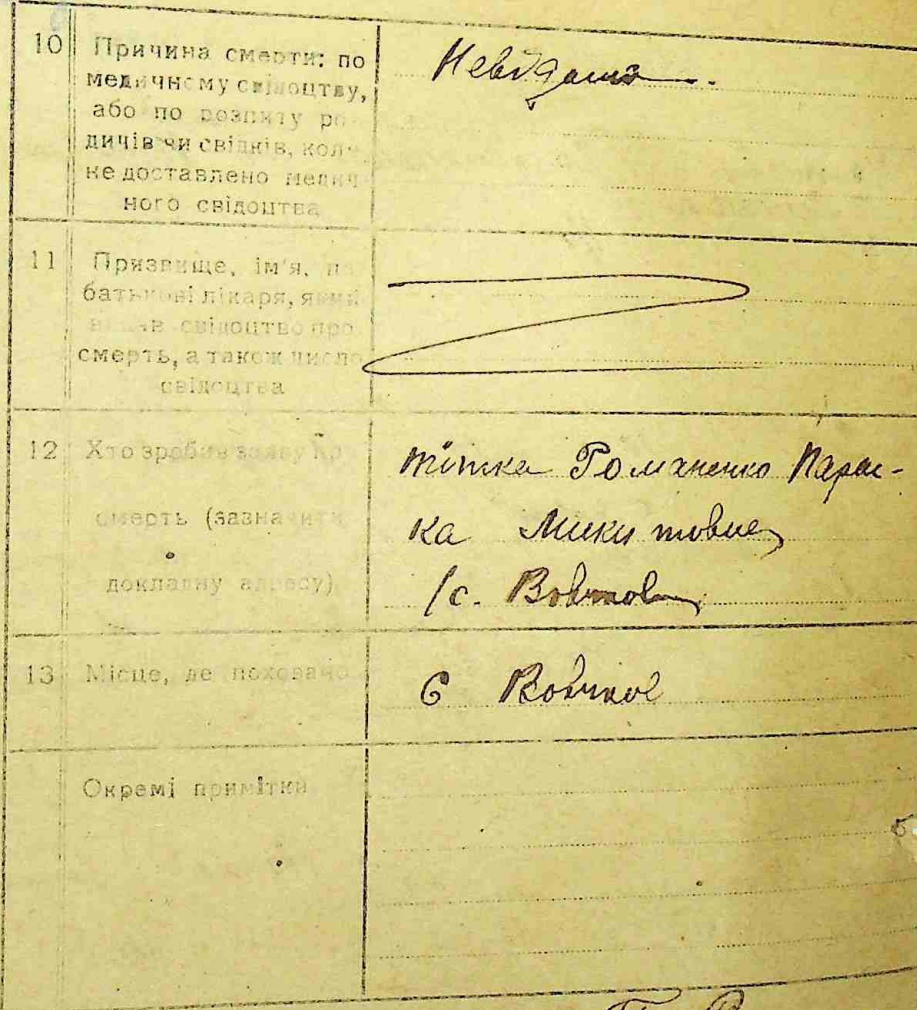 10 Причина смерти: по
медичному свідоцтву,
або по розпиту ро-
дичів чи свідків, коли
не доставлено медич-
ного свідоцтва
Невідома.
11 Призвище, ім'я, по
батькові лікаря, який
видав свідоцтво про
смерть, а також число
свідоцтва
12 Хто зробив заяву про
смерть (зазначити
докладну адресу)
тітка Романенко Парас-
ка Микитовна
/с.
13 Місце, де поховано
с
Окремі примітки